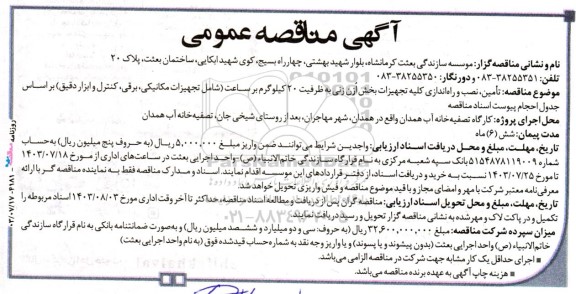 آگهی مناقصه عمومی
نام و نشانی مناقصه‌گزار: موسسه سازندگی بعثت کرمانشاه، بلوار شهید بهشتی، چهارراه بسیج، کوی شهید ابکایی، ساختمان بعثت، پلاک ۲۰
تلفن: ۳۸۲۵۵۳۵۱-۰۸۳ و دورنگار: ۳۸۲۵۵۳۵۰-۰۸۳
موضوع مناقصه: تأمین، نصب و راه‌اندازی کلیه تجهیزات بخش ازن زنی به ظرفیت ۲۰ کیلوگرم بر ساعت (شامل تجهیزات مکانیکی، برقی، کنترل و ابزار دقیق) بر اساس
جدول احجام پیوست اسناد مناقصه
محل اجرای پروژه: کارگاه تصفیه‌خانه آب همدان واقع در همدان، شهر مهاجران، بعد از روستای شیخی جان، تصفیه‌خانه آب همدان
مدت پیمان: شش (۶) ماه
تاریخ، مهلت، مبلغ و محل دریافت اسناد ارزیابی: واجدین شرایط می‌توانند ضمن واریز مبلغ ۵,۰۰۰,۰۰۰ ریال (به حروف پنج میلیون ریال) به‌حساب
شماره ۵۱۵۴۸۷۸۱۱۹۰۰۹ بانک سپه شعبه مرکزی به نام قرارگاه سازندگی خاتم‌الانبیاء (ص) -واحد اجرایی بعثت در ساعت‌های اداری از مورخ ۱۴۰۳/۰۷/۱۸
تا مورخ ۱۴۰۳/۰۷/۲۵ نسبت به خرید و دریافت اسناد، از دفتر قراردادهای این موسسه اقدام نمایند. اسناد و مدارک مناقصه فقط به نماینده مناقصه گر با ارائه
معرفی‌نامه معتبر شرکت با مهر و امضای مجاز و با قید موضوع مناقصه و فیش واریزی تحویل خواهد شد.
تاریخ، مهلت، مبلغ و محل تحویل اسناد ارزیابی: مناقصه گران پس از دریافت و مطالعه اسناد مناقصه، حداکثر تا آخر وقت اداری مورخ ۱۴۰۳/۰۸/۰۳ اسناد مربوطه را
تکمیل و در پاکت لاک و مهرشده به نشانی مناقصه گزار تحویل و رسید دریافت نمایند.
میزان سپرده شرکت مناقصه: مبلغ ۳۲,۶۰۰,۰۰۰,۰۰۰ ریال (به حروف: سی و دو میلیارد و ششصد میلیون ریال) و به‌صورت ضمانتنامه بانکی به نام قرارگاه سازندگی
خاتم‌الانبیاء (ص) واحد اجرایی بعثت (بدون پیشوند و یا پسوند) و یا واریز وجه نقد به شماره حساب قیدشده فوق (به نام واحد اجرایی بعثت)
• اجرای حداقل یک کار مشابه جهت شرکت در مناقصه الزامی می‌باشد.
• هزینه چاپ آگهی به عهده برنده مناقصه می‌باشد.